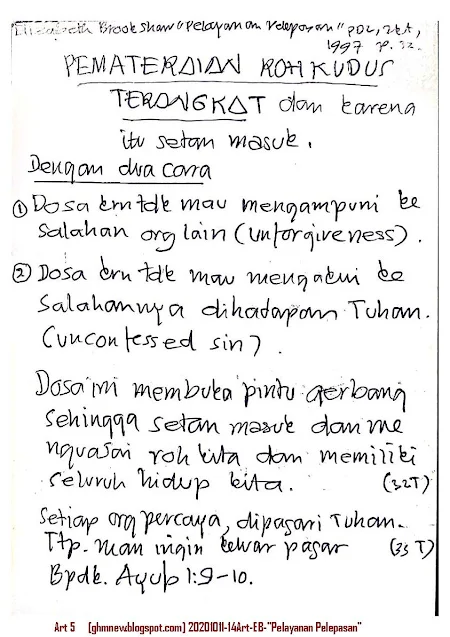 Elizabeth Brookshaw "Pelayanan Pelepasan" PDL, ZKA,
1997 p. 32.
PEMATERAIAN ROH KUDUS
TERANGKAT dan karena
itu setan masuk.
Dengan dua cara
① Dosa krn tdk mau mengampuni ke
salahan org lain (unforgiveness).
② Dosa krn tdk mau mengakui ke
salahannya dihadapan Tuhan.
(unconfessed sin).
Dosa ini membuka pintu gerbang
sehingga setan masuk dan me
nguasai roh kita dan memiliki
seluruh hidup kita. (32T)
Setiap org percaya, dipagari Tuhan.
Ttp. man ingin keluar pagar (33 T)
Bpdk. Ayub 1:9-10.
Art 5 [ghmnew.blogspot.com] 20201011-14Art-EB-"Pelayanan Pelepasan"